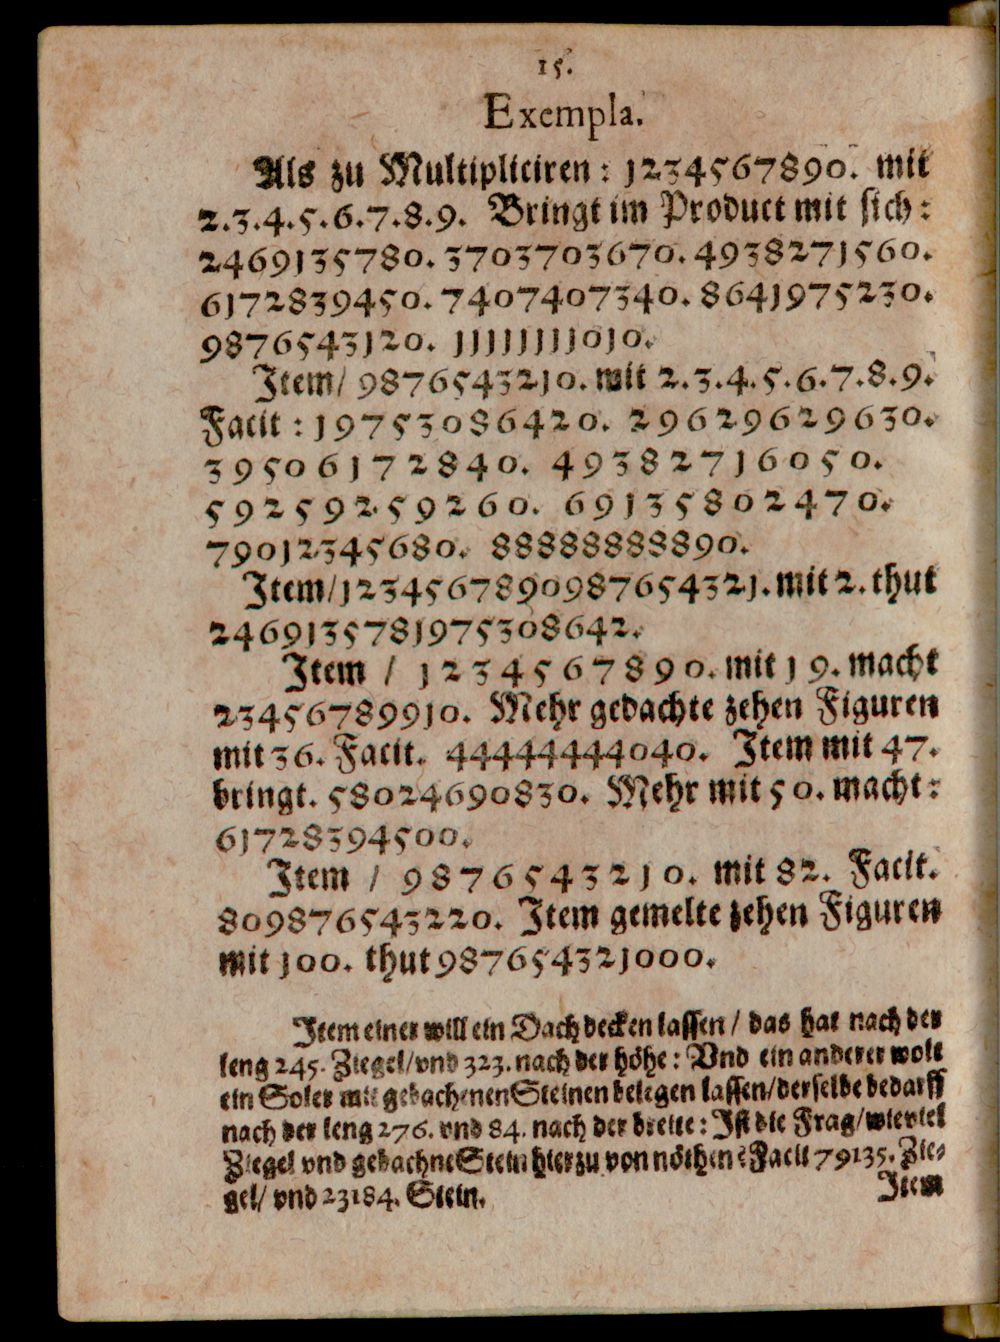 15.
Exempla.
Als zu Multipliciren: 1234567890. mit
2.3.4.5.6.7.8.9. Bringt im Product mit sich:
2469135780. 3703703670. 4938271560.
6172839450. 7407407340. 8641975230.
9876543120. 11111111010.
Item/ 9876543210. mit 2.3.4.5.6.7.8.9.
Facit: 19753086420. 29629629630.
39506172840. 49382716050.
59259259260. 69135802470.
79012345680. 88888888890.
Item/1234567890987654321. mit 2. thut
2469135781975308642.
Item / 1234567890. mit 19. macht
23456789910. Mehr gedachte zehen Figuren
mit 36. Facit. 44444444040. Item mit 47.
bringt. 58024690830. Mehr mit 50. macht:
61728394500.
Item / 9876543210. mit 82. Facit.
809876543220. Item gemelte zehen Figuren
mit 100. thut 987654321000.
Item einer will ein Dach decken lassen/ das hat nach der
leng 245. Ziegel/ vnd 323. nach der höhe: Vnd ein anderer wolt
ein Soler mit gebachenen Steinen belegen lassen/ derselbe bedarff
nach der leng 276. vnd 84. nach der breite: Ist die Frag/ wieviel
Ziegel vnd gebachne Stein hierzu von nöthen? Facit 79135. Zie-
gel/ vnd 23184. Stein.
Item